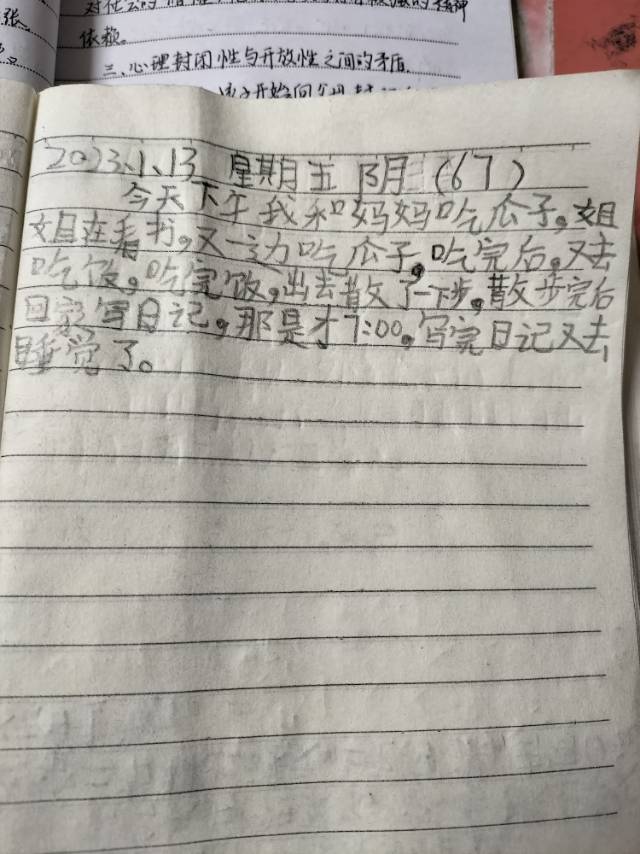 张
依赖。
三、心理封闭性与开放性之间的矛盾.
2023.1.13 星期五 阴 (67)
今天下午我和妈妈吃瓜子。姐
姐在看书,又一边吃瓜子。吃完后,又去
吃饭。吃完饭,出去散了一下步。散步完后
回家写日记。那是才7:00。写完日记又去
睡觉了。